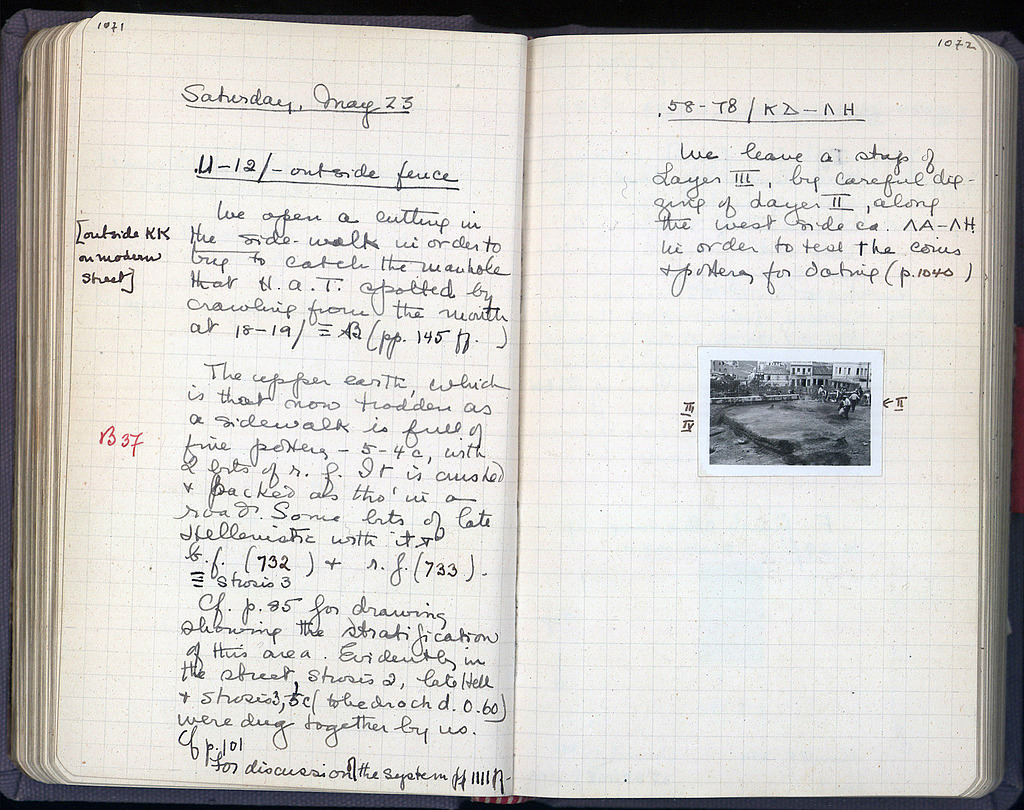 1071
Saturday, May 23
11-12/- outside fence
We open a cutting in
[outside KK
on modern
street]
the side-walk in order to
try to catch the manhole
that H.A.T. spotted by
crawling from the mouth
at 18-19/ Ξ (pp. 145 ff. )
The upper earth, which
is that now trodden as
a sidewalk is full of
B 37
fine pottery - 5-4c, with
2 bits of r.f. It is crushed
+ packed as tho' in a
road. Some bits of late
Hellenistic with it +
b.f. (732 ) + r.f. (733 ).
≡ Strosis 3
Cf. p. 85 for drawing
showing the stratification
of this area. Evidently in
the street, Strosis 2, late Hell
+ strosis 3, 5c( to bedrock d. 0.60)
were dug together by us.
Cf p. 101
For discussion of the system pp 1111 ff-
1072
58-78 / ΚΔ-ΛΗ
We leave a strip of
Layer III, by careful dig-
ging of Layer II, along
the west side ca. ΛΑ-ΛΗ
in order to test the coins
+ pottery for dating (p. 1040 )
III
IV
← II